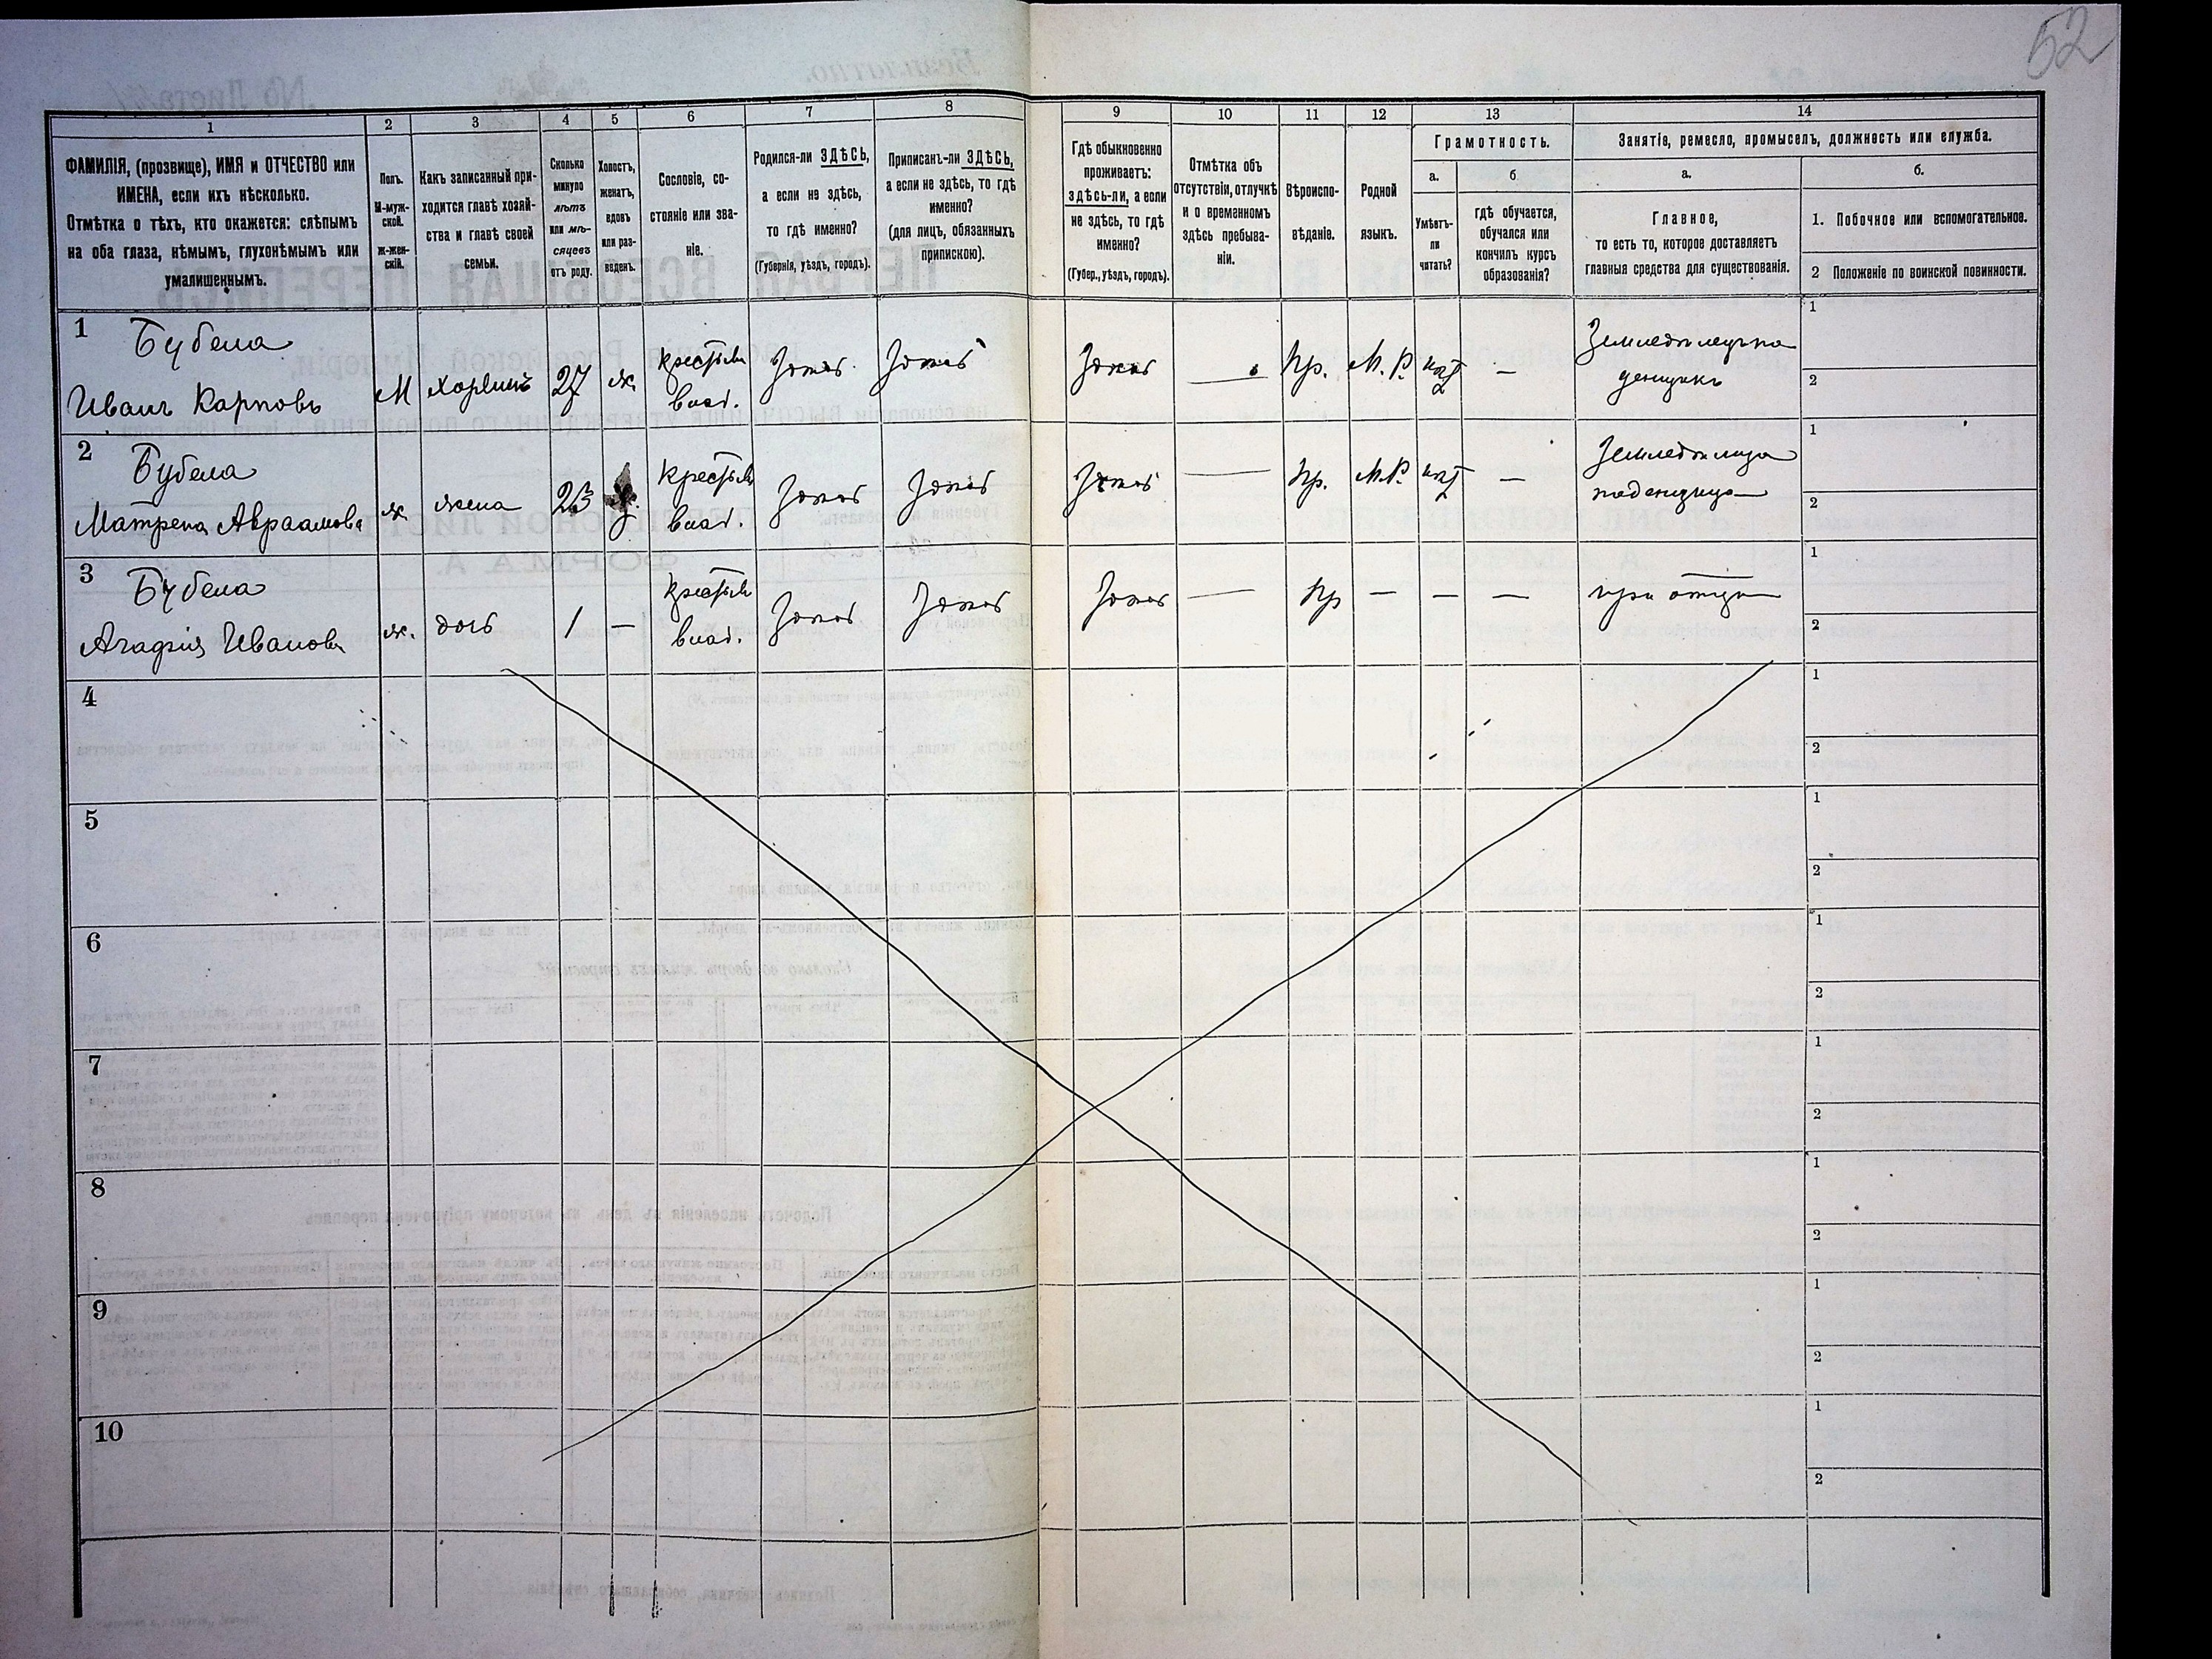 52
1
ФАМИЛІЯ, (прозвище), ИМЯ и ОТЧЕСТВО или
ИМЕНА, если ихъ нѣсколько.
Отмѣтка о тѣхъ, кто окажется: слѣпымъ
на оба глаза, нѣмымъ, глухонѣмымъ или
умалишеннымъ.
2
Полъ.
М-муж-
ской.
ж-жен-
скій.
3
Какъ записанный при-
ходится главѣ хозяй-
ства и главѣ своей
семьи.
4
Сколько
минуло
лѣтъ
или мѣ-
сяцевъ
отъ роду.
5
Холостъ,
женатъ,
вдовъ
или раз-
веденъ.
6
Сословіе, со-
стояніе или зва-
ніе.
7
Родился-ли ЗДѢСЬ,
а если не здѣсь,
то гдѣ именно?
(Губернія, уѣздъ, городъ).
8
Приписанъ-ли ЗДѢСЬ,
а если не здѣсь, то гдѣ
именно?
(для лицъ, обязанныхъ
припискою).
9
Гдѣ обыкновенно
проживаетъ:
здѣсь-ли, а если
не здѣсь, то гдѣ
именно?
(Губер., уѣздъ, городъ).
10
Отмѣтка объ
отсутствіи, отлучкѣ
и о временномъ
здѣсь пребыва-
ніи.
11
Вѣроиспо-
вѣданіе.
12
Родной
языкъ.
13
Грамотность.
а.
Умѣетъ-
ли
читать?
б
гдѣ обучается,
обучался или
кончилъ курсъ
образованія?
14
Занятіе, ремесло, промыселъ, должность или служба.
а.
Главное,
то есть то, которое доставляетъ
главныя средства для существованія.
б.
1. Побочное или вспомогательное.
2 Положеніе по воинской повинности.
1
Бубела
Иванъ Карповъ
М
27
ж.
крестьян
влад.
Здесь
Здесь
Здесь
—
Пр.
М. Р.
нѣт
—
1
2
2
Бубела
Матрена Авраамова
ж.
жена
23
крестьян
влад.
Здесь
Здесь
Здесь
—
Пр.
М. Р.
нѣт
—
поденщица
1
2
3
Бубела
Агафия Иванова
ж.
дочь
1
—
крестьян
влад.
Здесь
Здесь
Здесь
—
Пр
—
—
—
при отцѣ
1
2
4
1
2
5
1
2
6
1
2
7
1
2
8
1
2
9
1
2
10
1
2